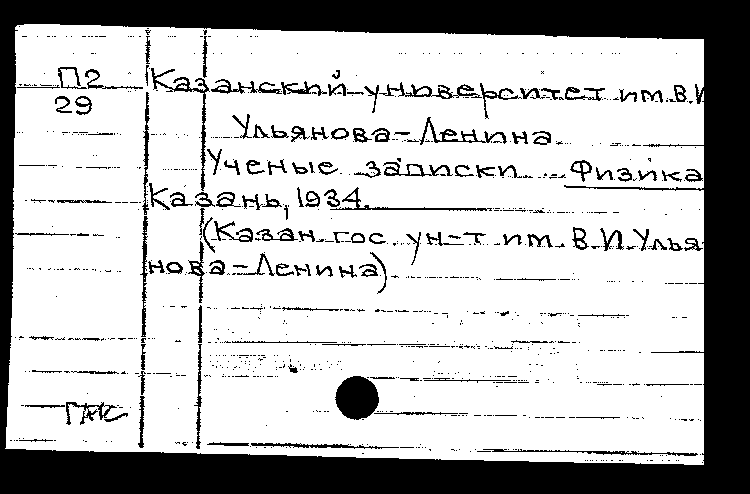 П2
29
Казанский университет им. В.И
Ульянова-Ленина.
Ученые записки ... Физика
Казань, 1934.
(Казан. гос. ун-т им. В.И. Улья-
нова-Ленина).
ГАК